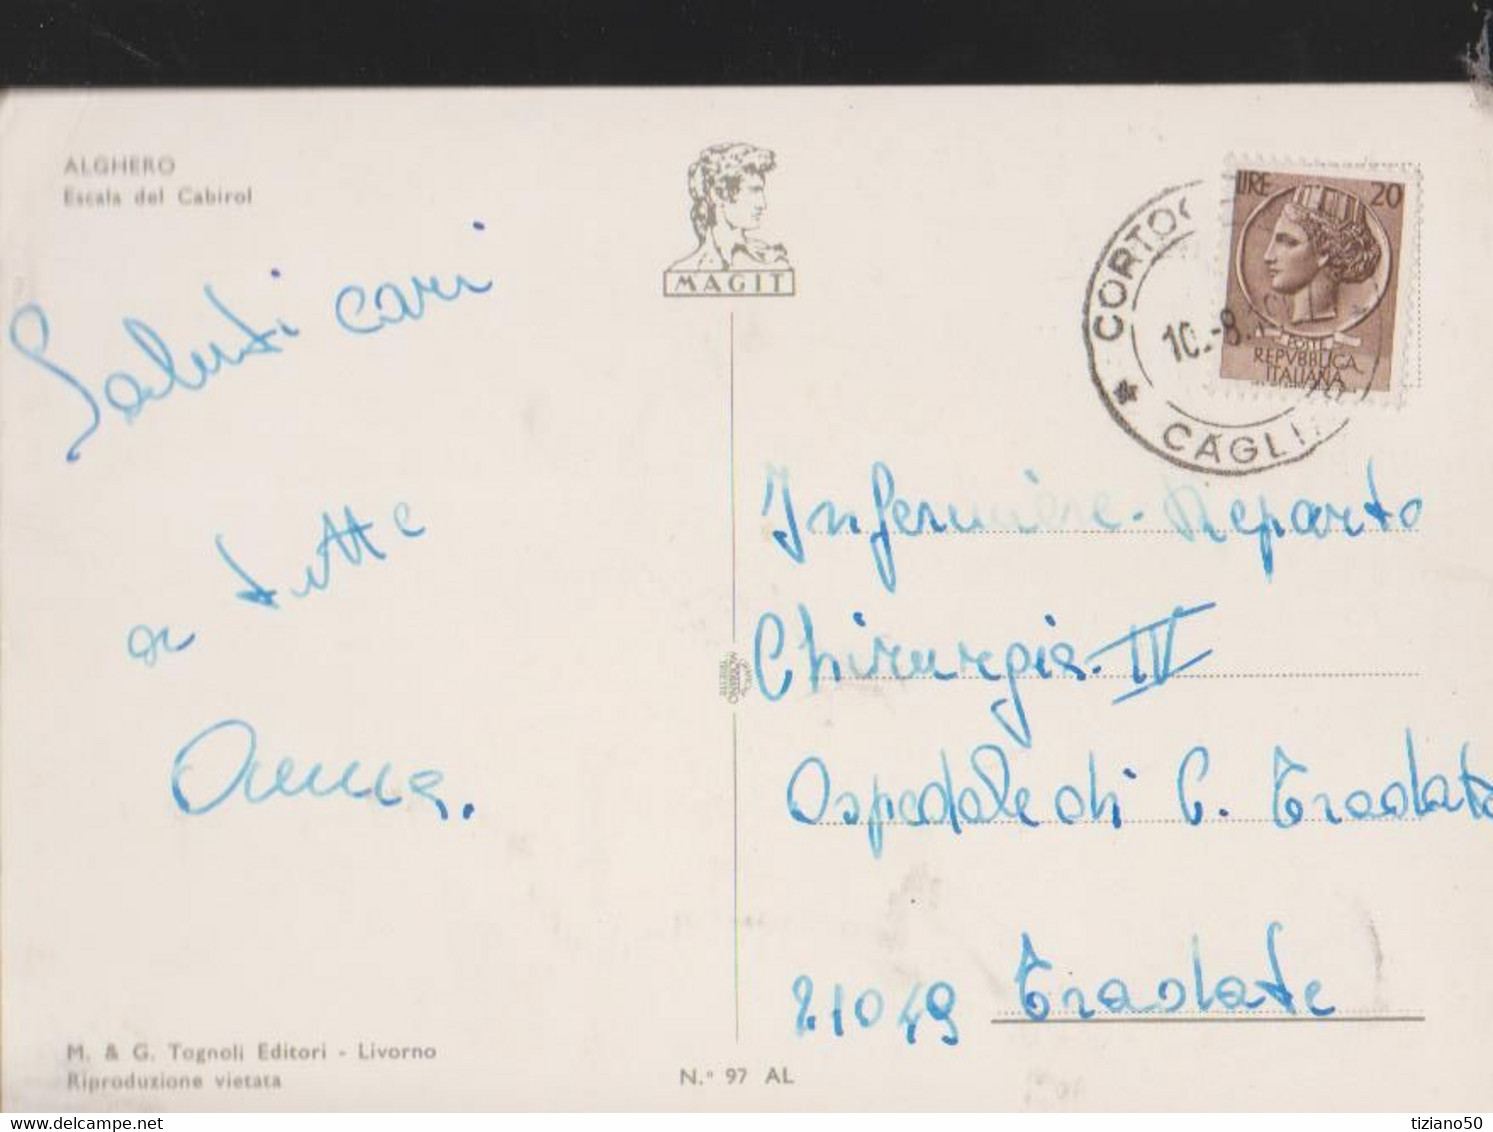 ALGHERO
Escala del Cabirol
MAGIT
LIRE 20
POSTE
REPVBBLICA
ITALIANA
CORTOG
10.-8.
CAGLI
Saluti cari
a tutte
Anna.
Infermiere-Reparto
Chirurgia-IV
Ospedale di C. Tradate
21049 Tradate
M. & G. Tognoli Editori - Livorno
Riproduzione vietata
N.° 97 AL
delcampe.net
tiziano50